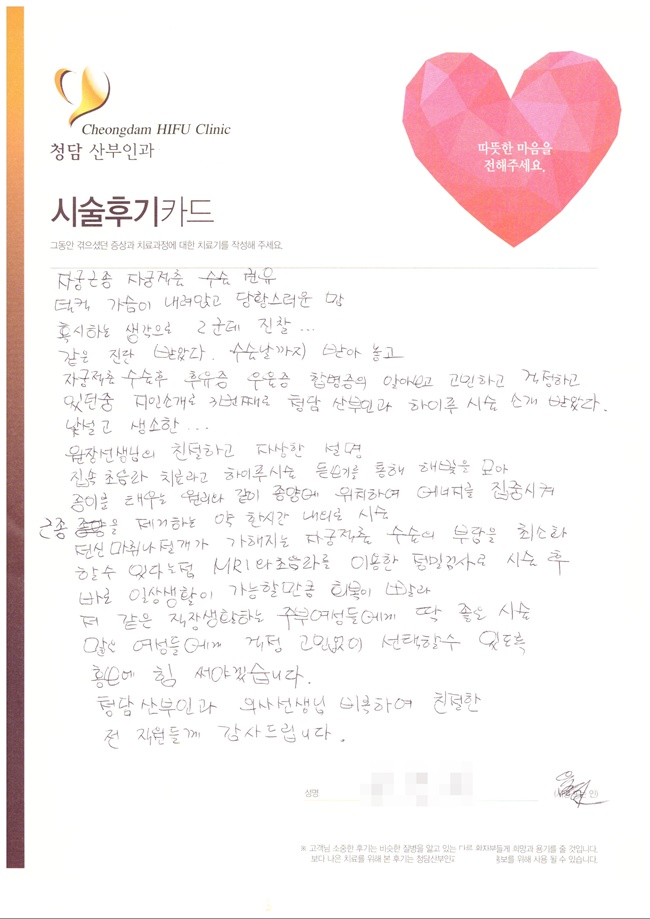 Cheongdam HIFU Clinic
청담 산부인과
따뜻한 마음을
전해주세요.
시술후기카드
그동안 겪으셨던 증상과 치료과정에 대한 치료기를 작성해 주세요.
자궁근종 자궁적출 수술 권유
덜컥 가슴이 내려앉고 당황스러운 맘
혹시하는 생각으로 2군데 진찰 ...
같은 진단 받았다. 수술날까지 받아 놓고
자궁적출 수술후 후유증 우울증 합병증의 알아보고 고민하고 걱정하고
있던중 지인소개로 3번째로 청담 산부인과 하이푸 시술 소개 받았다.
낯설고 생소한 ...
원장선생님의 친절하고 자상한 설명
집속 초음파 치료라고 하이푸시술 돋보기를 통해 햇빛을 모아
종이를 태우는 원리와 같이 종양에 위치하여 에너지를 집중시켜
근종 을 제거하는 약 한시간 내외로 시술
전신마취나 절개가 가해지는 자궁적출 수술의 부담을 최소화
할수 있다는점 MRI와 초음파를 이용한 정밀검사로 시술 후
바로 일상생활이 가능할만큼 회복이 빨라
저 같은 직장생활하는 주부여성들에게 딱 좋은 시술
많은 여성들에게 걱정 고민없이 선택할수 있도록
홍보에 힘 써야겠습니다.
청담산부인과 의사선생님 비롯하여 친절한
전 직원들께 감사드립니다.
성명
※ 고객님 소중한 후기는 비슷한 질병을 앓고 있는 다른 환자분들게 희망과 용기를 줄 것입니다.
보다 나은 치료를 위해 본 후기는 청담산부인과 홍보를 위해 사용 될 수 있습니다.